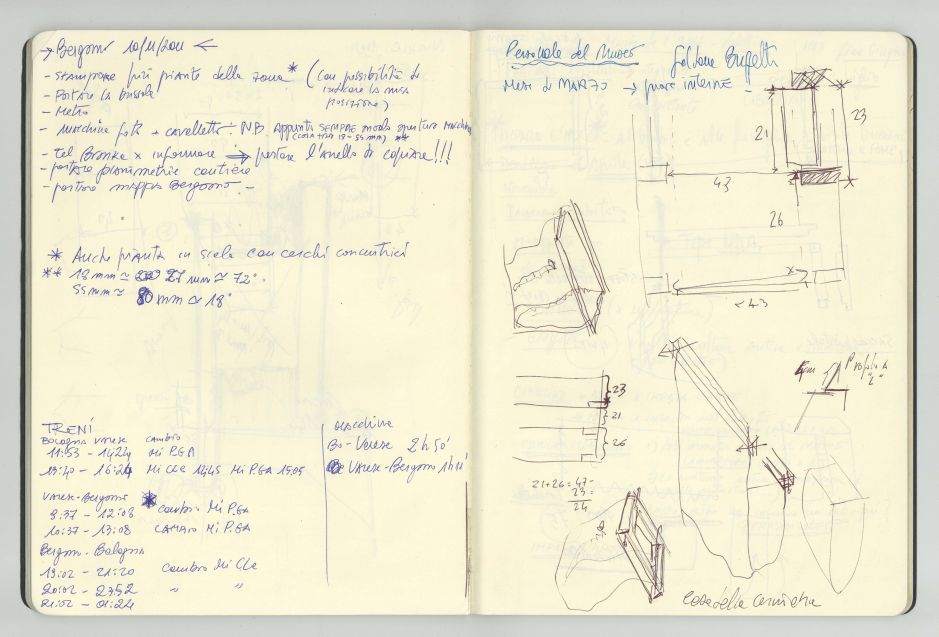 → Bergamo 10/11/2011 ←
- STAMPARE più piante della zona * (con possibilità di
indicare la mia
posizione)
- Portare la bussola
- Metro
- Macchina foto + cavalletto: N.B. Appunti SEMPRE modo apertura
18-55 mm) **
- Tel Bronka x informare ⇒ portare l'anello di !!!
- portare planimetrie cantiere
- portare mappa Bergamo -
* Anche pianta in scala con cerchi concentrici
** 18 mm ≃ 27 mm ≃ 72°.
55 mm ≃ 80 mm ≃ 18°
TRENI
Bologna Varese cambio
11:53 - 14:24 Mi P.GA
13:40 - 16:24 Mi CLE 14,45 Mi P.GA 15,05
Varese-Bergamo
9:37 - 12:08 * cambio Mi P.GA
10:37 - 13:08 CAMBIO Mi P.GA
Bergamo - Bologna
19:02 - 21:20 cambio Mi CLE
20:02 - 23 52 " "
21:02 - 01:24
macchina
Bo-Varese 2h 50'
Varese-Bergamo 1h
Personale del Museo
MESE di MARZO → prove interne -
21
23
43
26
< 43
23
21
26
21+26 = 47 -
23 =
24
Profilo a
"L"